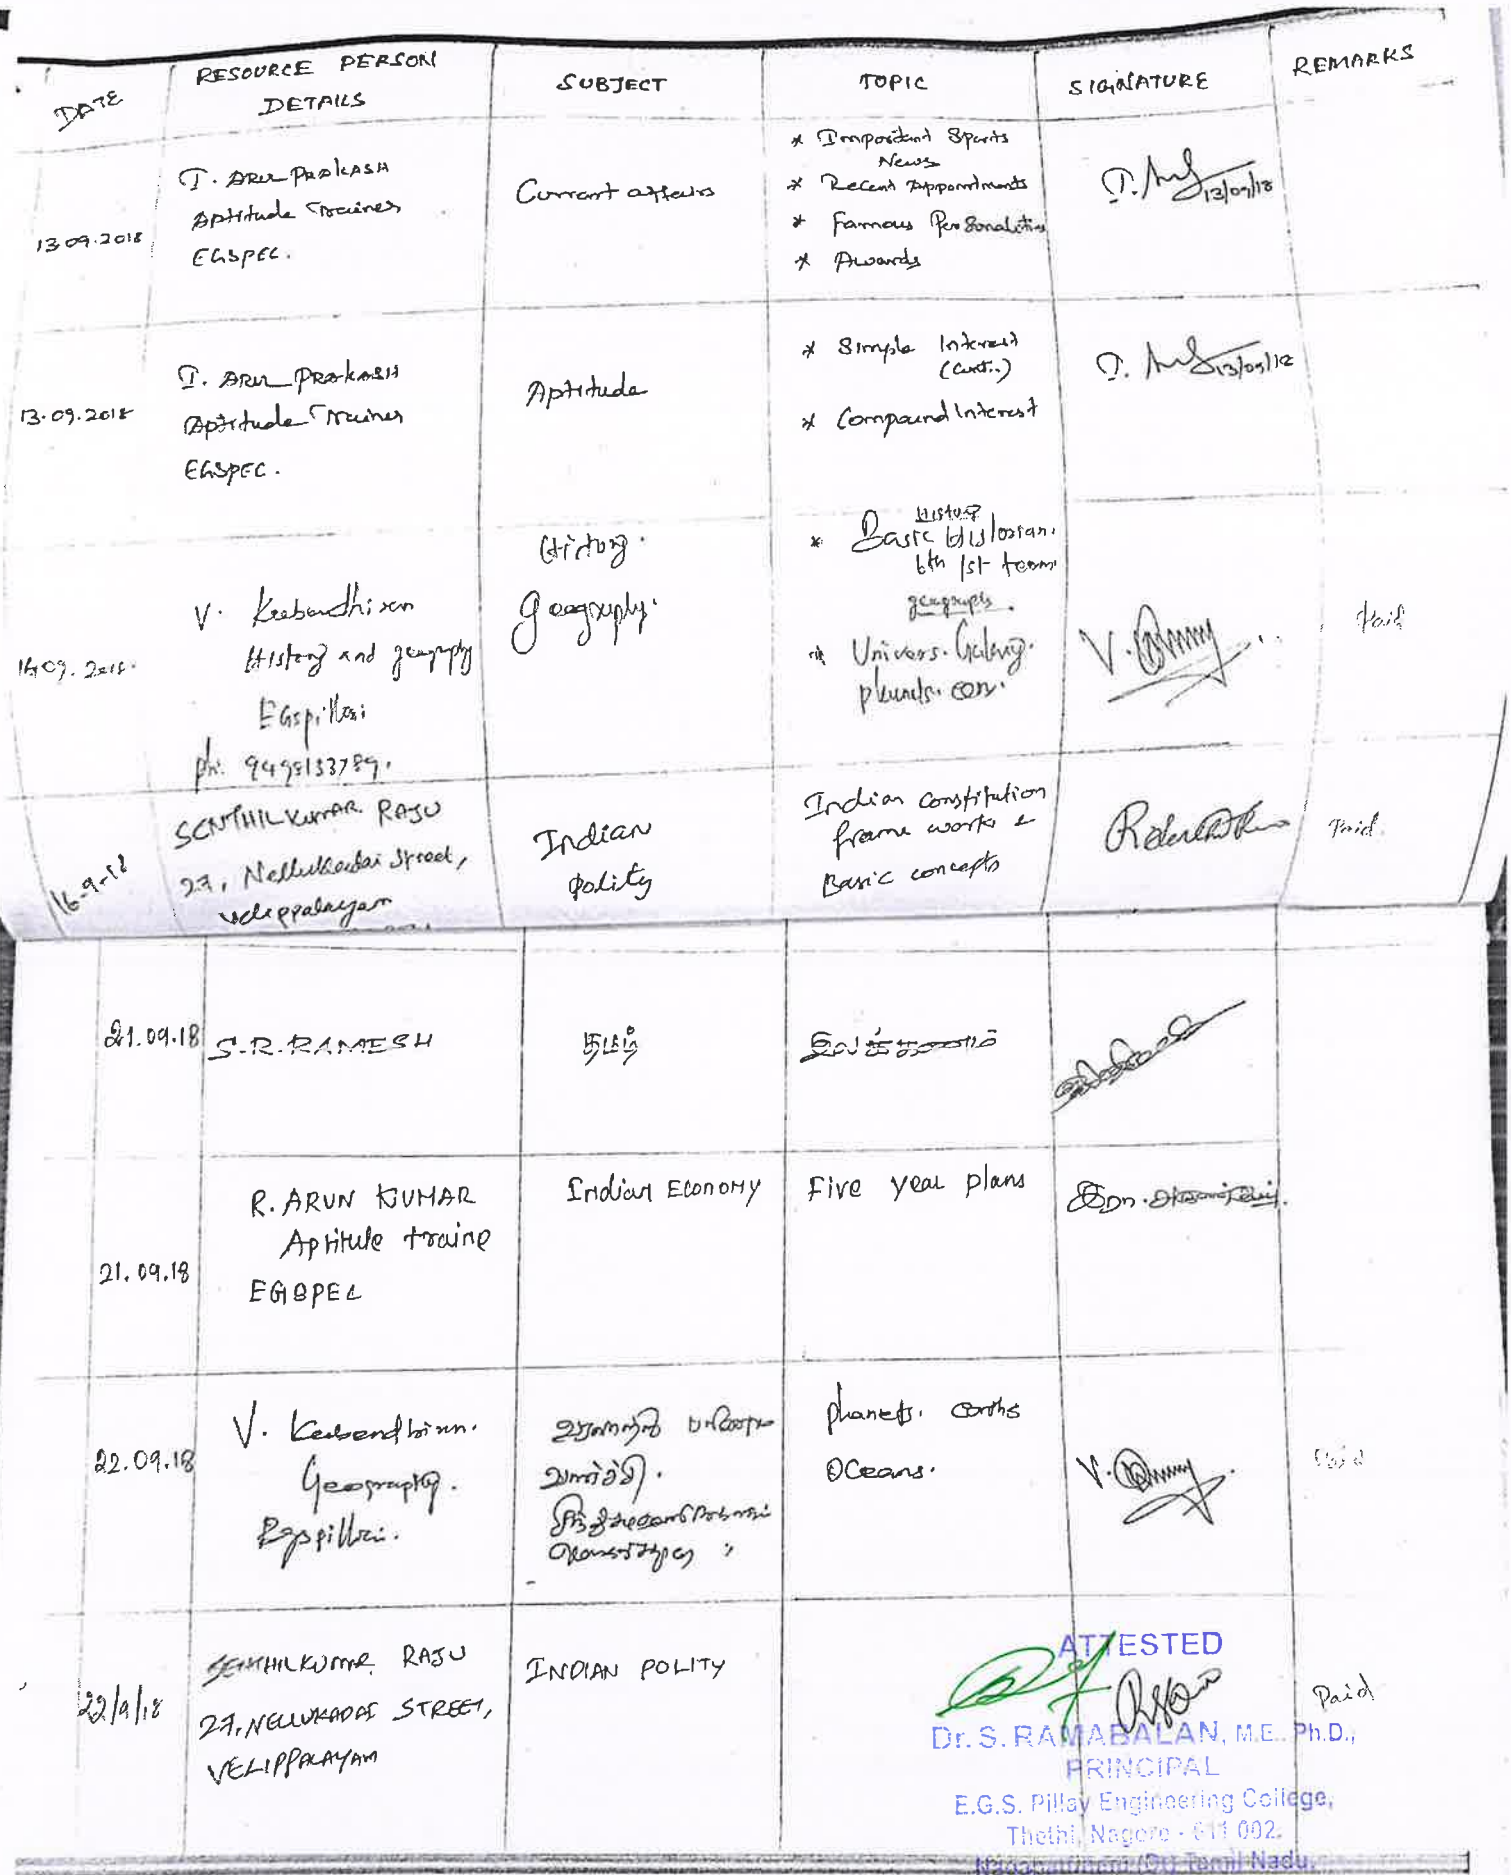 DATE
RESOURCE PERSON DETAILS
SUBJECT
TOPIC
SIGNATURE
REMARKS
13.09.2018
T. ARUL PRAKASH
Aptitude Trainer
EGSPEC.
Current affairs
* Important Sports
News
* Recent Appointments
* Famous Personalities
* Awards
13/09/18
13.09.2018
T. ARUL PRAKASH
Aptitude Trainer
EGSPEC.
Aptitude
* Simple Interest
(Cont..)
* Compound Interest
13/09/18
V.
History and geography
EGspillai
ph: 9498133789.
History.
geography.
History
* Basic
6th 1st term
geography.
* Univers. Galaxy.
Paid
16-9-18
SENTHILKUMAR RAJU
27, Nellukadai Street,
Velippalayam
Indian
Polity
Indian constitution
frame work &
Basic concepts
Paid.
21.09.18
S.R. RAMESH
தமிழ்
இலக்கணம்
21.09.18
R. ARUN KUMAR
Aptitule traine
EGSPEC
Indian Economy
Five year plans
22.09.18
V.
Geography.
Egspillai.
planets.
Oceans.
Paid
22/9/18
SENTHILKUMAR RAJU
27, NELLUKADAI STREET,
VELIPPALAYAM
INDIAN POLITY
Paid
ATTESTED
Dr. S. RAMABALAN, M.E., Ph.D.,
PRINCIPAL
E.G.S. Pillay Engineering College,
Thethi, Nagore - 611 002.
Nagapattinam (Dt) Tamil Nadu.